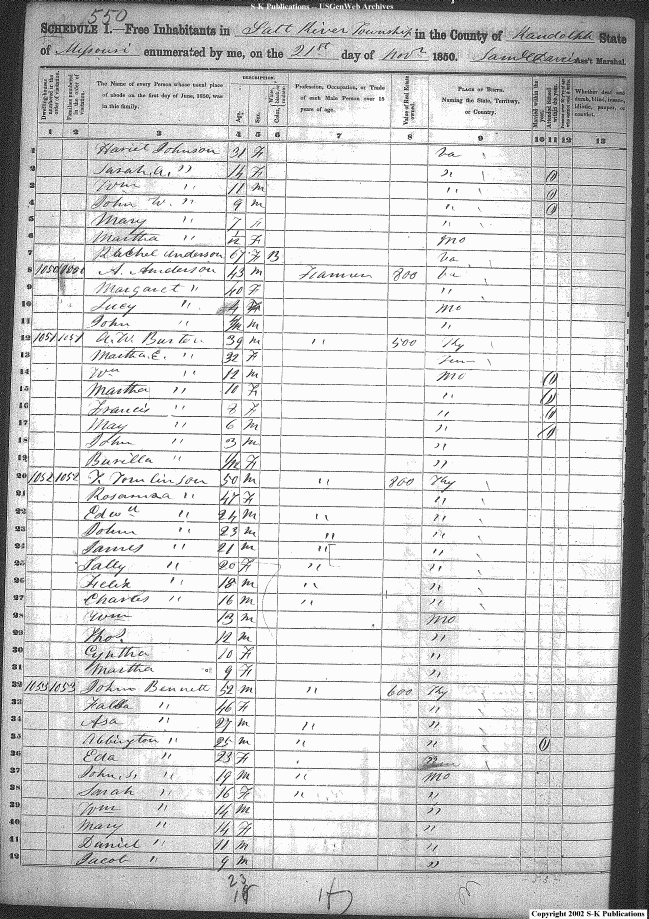 S-K Publications -- USGenWeb Archives
550
SCHEDULE I.—Free Inhabitants in Salt River Township in the County of Randolph State
of Missouri enumerated by me, on the 21st day of Novr 1850. Ass't Marshal.
DESCRIPTION.
Dwelling-houses numbered in the order of visitation.
The Name of every Person whose usual place of abode on the first day of June, 1850, was in this family.
Age.
Sex.
Profession, Occupation, or Trade of each Male Person over 15 years of age.
Value of Real Estate owned.
PLACE OF BIRTH. Naming the State, Territory, or Country.
1 2 3 4 5 6 7 8 9 10 11 12 13
1 Hariet Johnson 31 F Va
2 Sarah A. " 14 F " (1)
3 Wm " 11 m " (1)
4 John W. " 9 m " (1)
5 Mary " 7 "
6 Martha " F Mo
7 Rachel Anderson 67 F B Va
8 1050 A. Anderson 43 m Farmer 800 Va
9 Margaret " 40 F "
10 Lucy " 4 F Mo
11 John " m "
12 1051 1051 A.W. Burton 39 m " 500 Ky
13 Martha E. " 32 F
14 Wm " 12 m Mo (1)
15 Martha " 10 F " (1)
16 Francis " 8 F " (1)
17 May " 6 m " (1)
18 John " 3 m "
19 Burilla " F "
20 1052 1052 F. Tomlinson 50 m " 800 Ky
21 " 47 F "
22 Edwd " 24 m " "
23 John " 23 m " "
24 James " 21 m " "
25 Sally " 20 F " "
26 Felix " 18 m " "
27 Charles " 16 m " "
28 Wm 13 m Mo
29 Thos. 12 m "
30 Cyntha 10 F "
31 Martha 9 F "
32 1053 1053 John Bennett 52 m " 600 Ky
33 " 46 F "
34 Asa " 27 m " "
35 Abbington " 25 m " " (1)
36 Eda " 23 F
37 John, S. " 19 m " Mo
38 Sarah " 16 F " "
39 Wm " 14 m "
40 Mary " 14 F "
41 Daniel " 11 m "
42 Jacob " 9 m "
23
18
Copyright 2002 S-K Publications